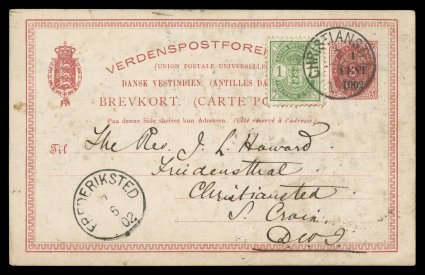 VERDENSPOSTFOREN
(UNION POSTALE UNIVERSELLE
DANSK VESTINDIEN. (ANTILLES DA
BREVKORT. (CARTE PO
Paa denne Side skrives kun Adressen. (Côté réservé à l'adresse.)
1
CHRISTIANS
1
1902
Til The Rev. J. L. Howard
Friedensthal
Christiansted
S. Croix
D.W.I.
FREDERIKSTED
02